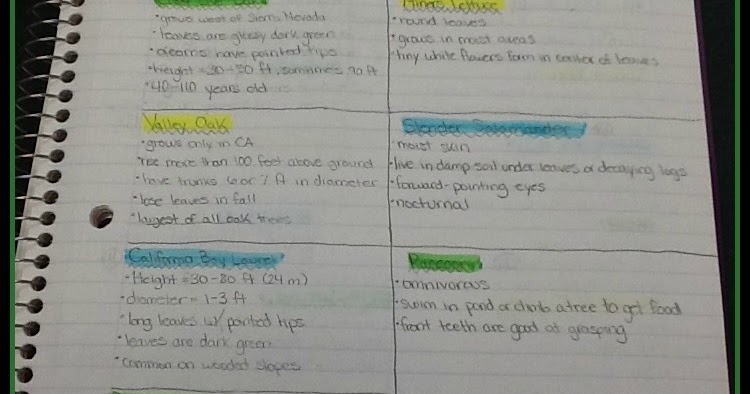 grows west of Sierra Nevada
· leaves are glossy dark green
· acorns have pointed tips
· height = 30-50 ft, sometimes 90 ft
· 40-110 years old
Valley Oak
· grows only in CA
· rise more than 100 feet above ground
· have trunks 6 or 7 ft in diameter
· lose leaves in fall
· largest of all oak trees
California Bay Laurel
· Height = 30-80 ft (24 m)
· diameter = 1-3 ft
· long leaves w/ pointed tips
· leaves are dark green
· common on wooded slopes
Miners Lettuce
· round leaves
· grows in moist areas
· tiny white flowers form in center of leaves
Slender Salamander
· moist skin
· live in damp soil under leaves or decaying logs
· forward-pointing eyes
· nocturnal
Raccoon
· omnivorous
· swim in pond or climb a tree to get food
· front teeth are good at grasping